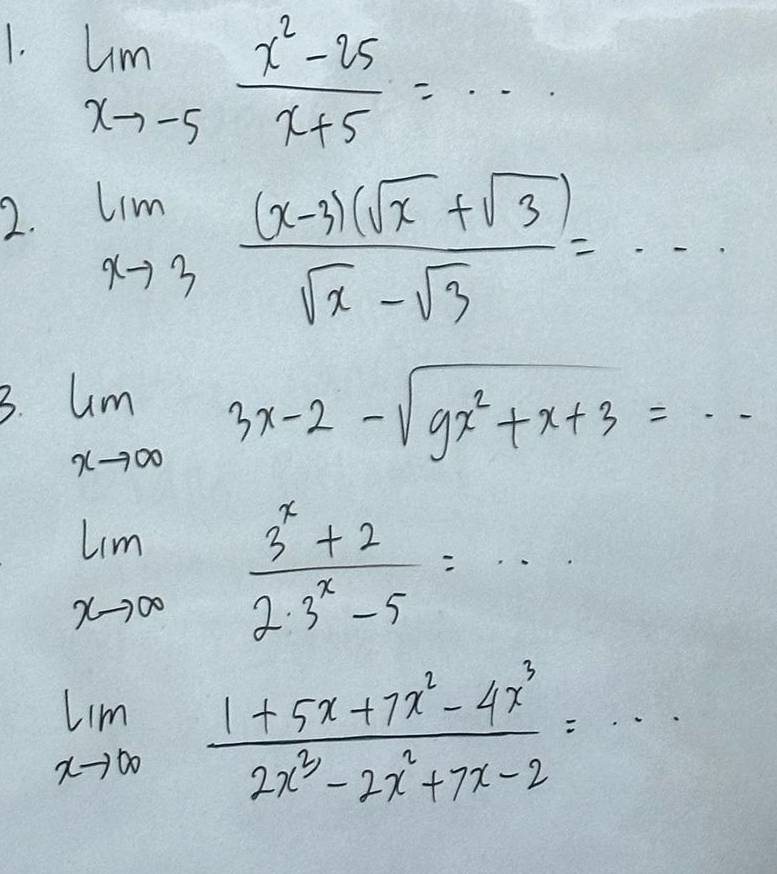 1. lim x→-5 (x² - 25)/(x+5) = ...
2. lim x→3 (x-3)(√x + √3)/(√x - √3) = ...
3. lim x→∞ 3x-2 - √(9x² + x + 3) = ..
lim x→∞ (3ˣ + 2)/(2·3ˣ - 5) = ...
lim x→∞ (1 + 5x + 7x² - 4x³)/(2x³ - 2x² + 7x - 2) = ...